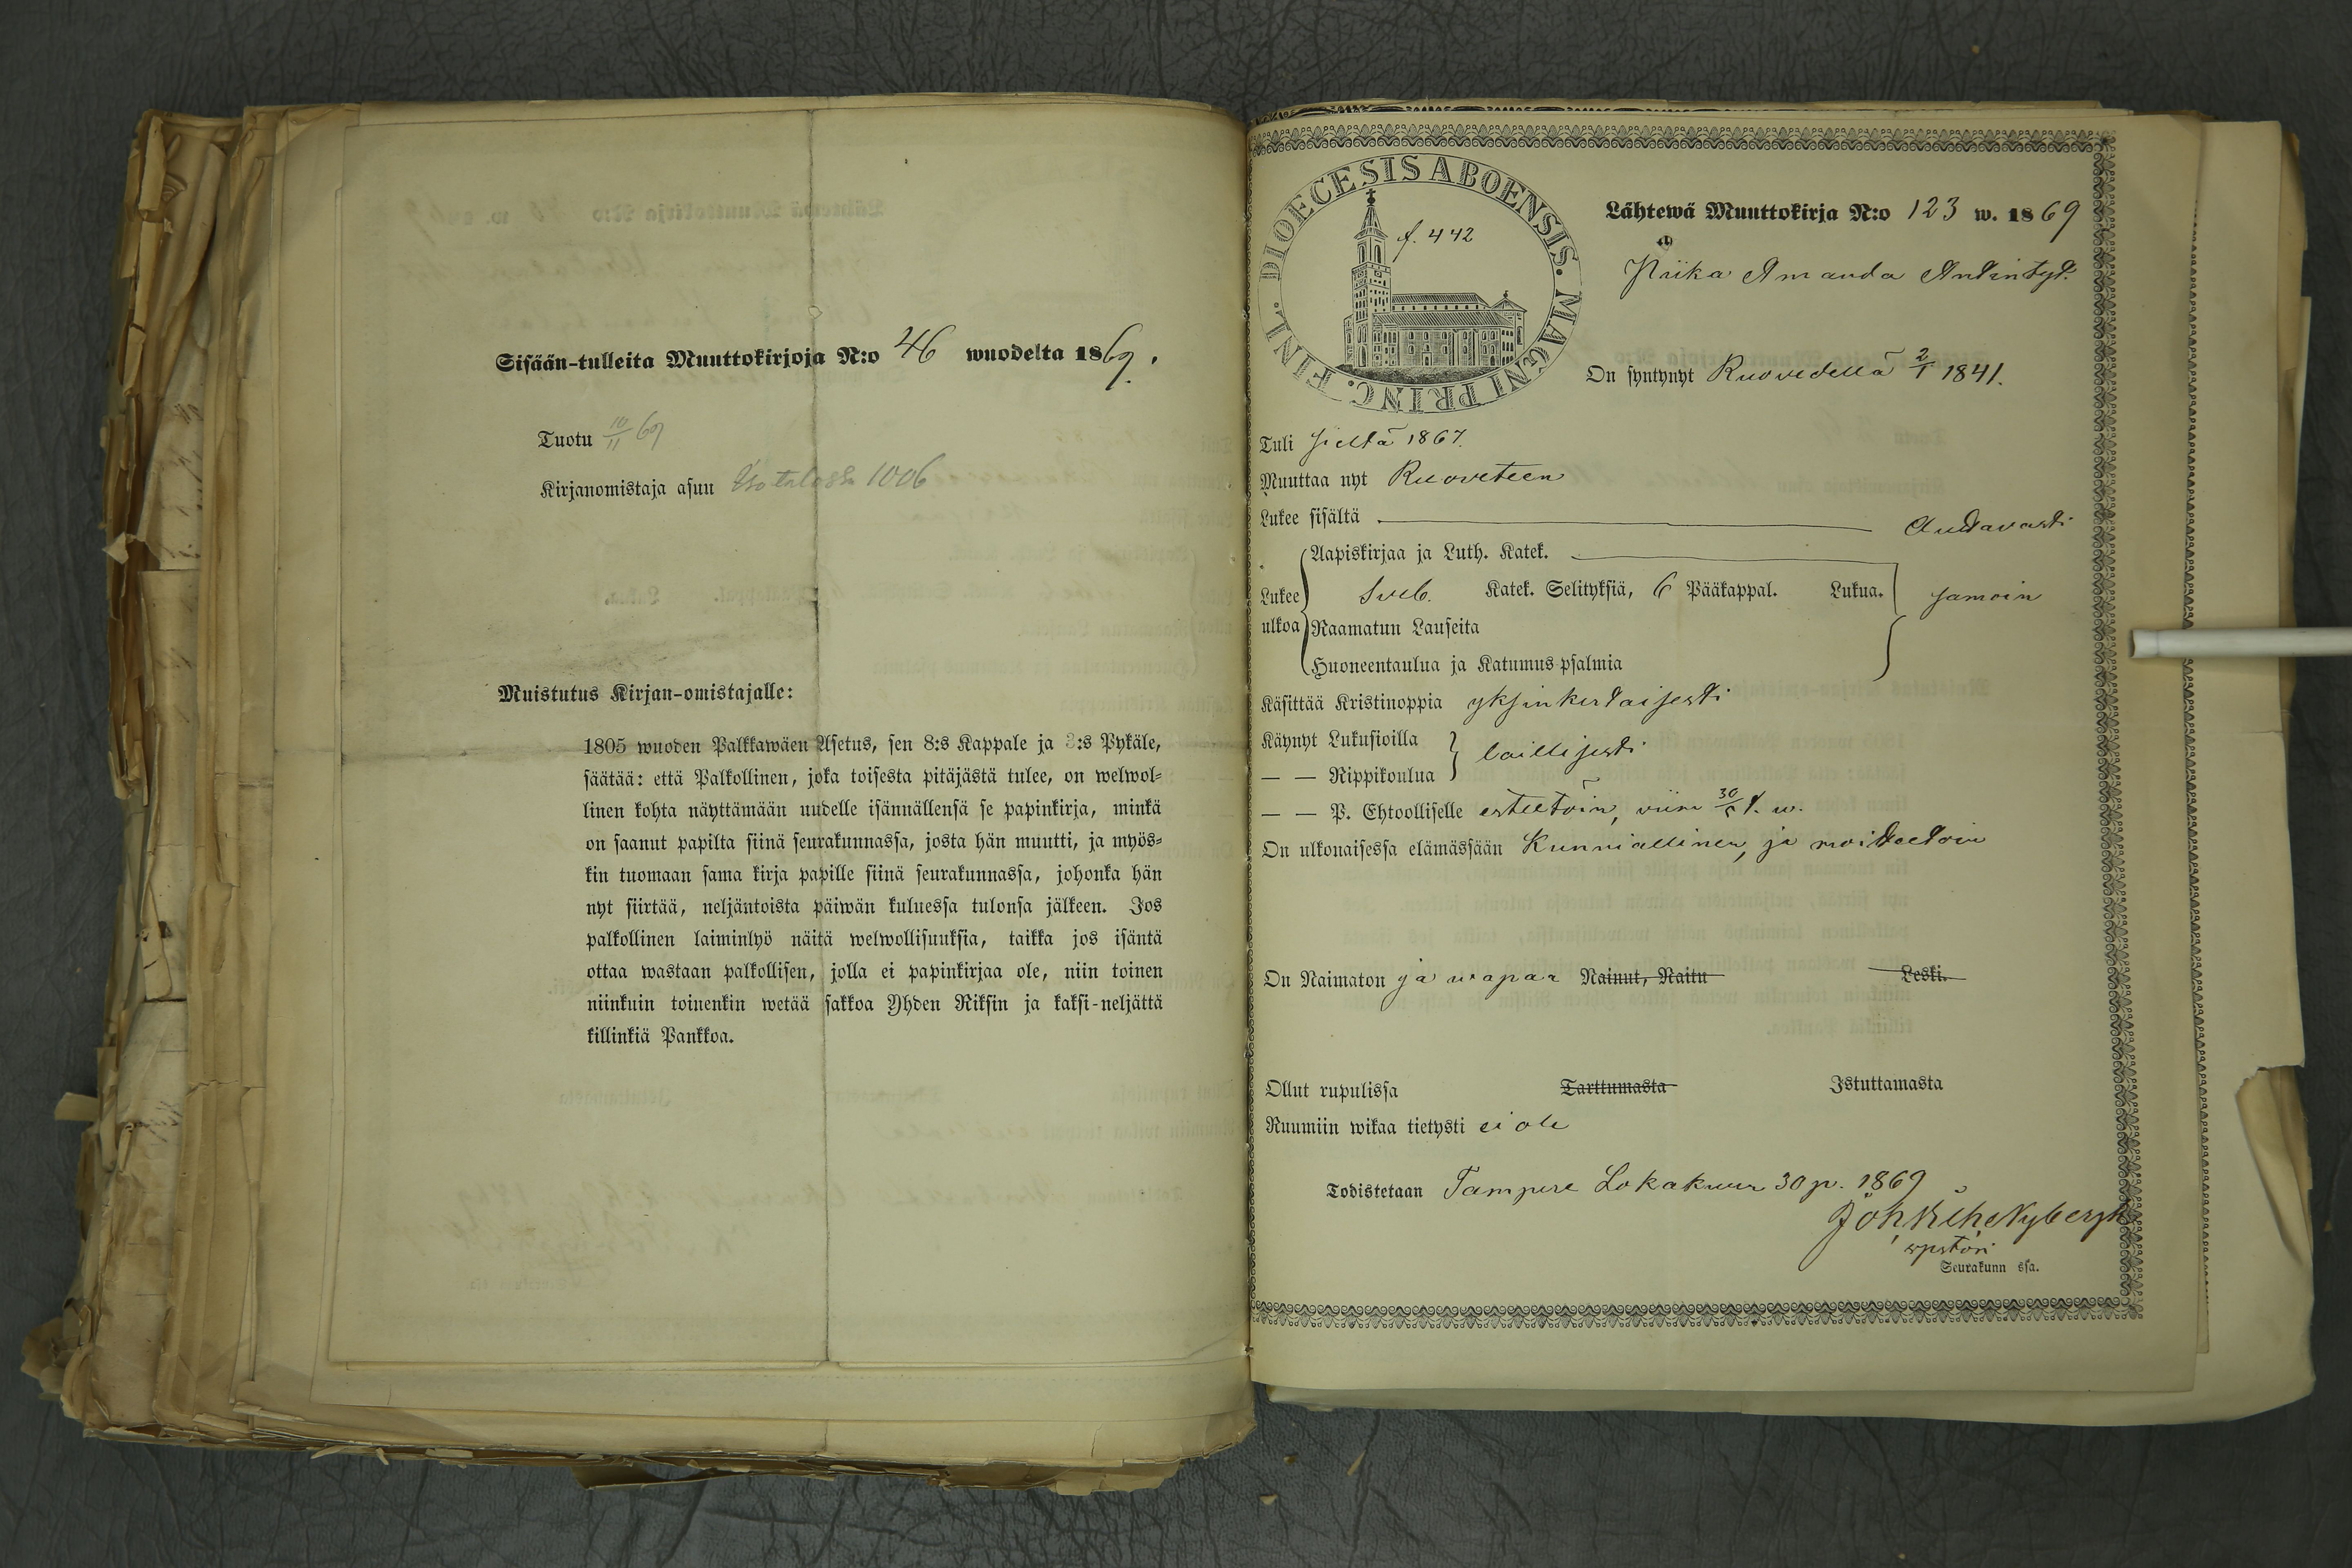 Sisään-tulleita Muuttokirjoja N:o 46 wuodelta 1869.
Tuotu 10/11 69
Kirjanomistaja asuu 1006
Muistutus Kirjan-omistajalle:
1805 wuoden Palkkawäen Asetus, sen 8:s Kappale ja 3:s Pykäle,
säätää: että Palkollinen, joka toisesta pitäjästä tulee, on welwol=
linen kohta näyttämään uudelle isännällensä se papinkirja, minkä
on saanut papilta siinä seurakunnassa, josta hän muutti, ja myös=
kin tuomaan sama kirja papille siinä seurakunnassa, johonka hän
nyt siirtää, neljäntoista päiwän kuluessa tulonsa jälkeen. Jos
palkollinen laiminlyö näitä welwollisuuksia, taikka jos isäntä
ottaa wastaan palkollisen, jolla ei papinkirjaa ole, niin toinen
niinkuin toinenkin wetää sakkoa Yhden Riksin ja kaksi-neljättä
killinkiä Pankkoa.
DIOECESIS ABOENSIS. MAGNI PRINC. FINL.
f. 442
Lähtewä Muuttokirja N:o 123 w. 1869
Amanda Antintyt.
On syntynyt Ruovedellä 2/1 1841.
Tuli sieltä 1867.
Muuttaa nyt Ruoveteen
Lukee sisältä Auttavasti
Aapiskirjaa ja Luth. Katek.
Lukee Sveb. Katek. Selityksiä, 6 Pääkappal. Lukua. samoin
ulkoa Raamatun Lauseita
Huoneentaulua ja Katumus-psalmia
Käsittää Kristinoppia yksinkertaisesti
Käynyt Lukusioilla laillisesti
— — Rippikoulua
— — P. Ehtoolliselle esteetöin, viim 30/5 t. w.
On ulkonaisessa elämässään Kunniallinen, ja moitteetoin
On Naimaton ja wapaa Nainut, Naitu Leski.
Ollut rupulissa Tarttumasta Istuttamasta
Ruumiin wikaa tietysti ei ole
Todistetaan Tampere Lokakuun 30 p. 1869
Nybergh
Seurakunn ssa.